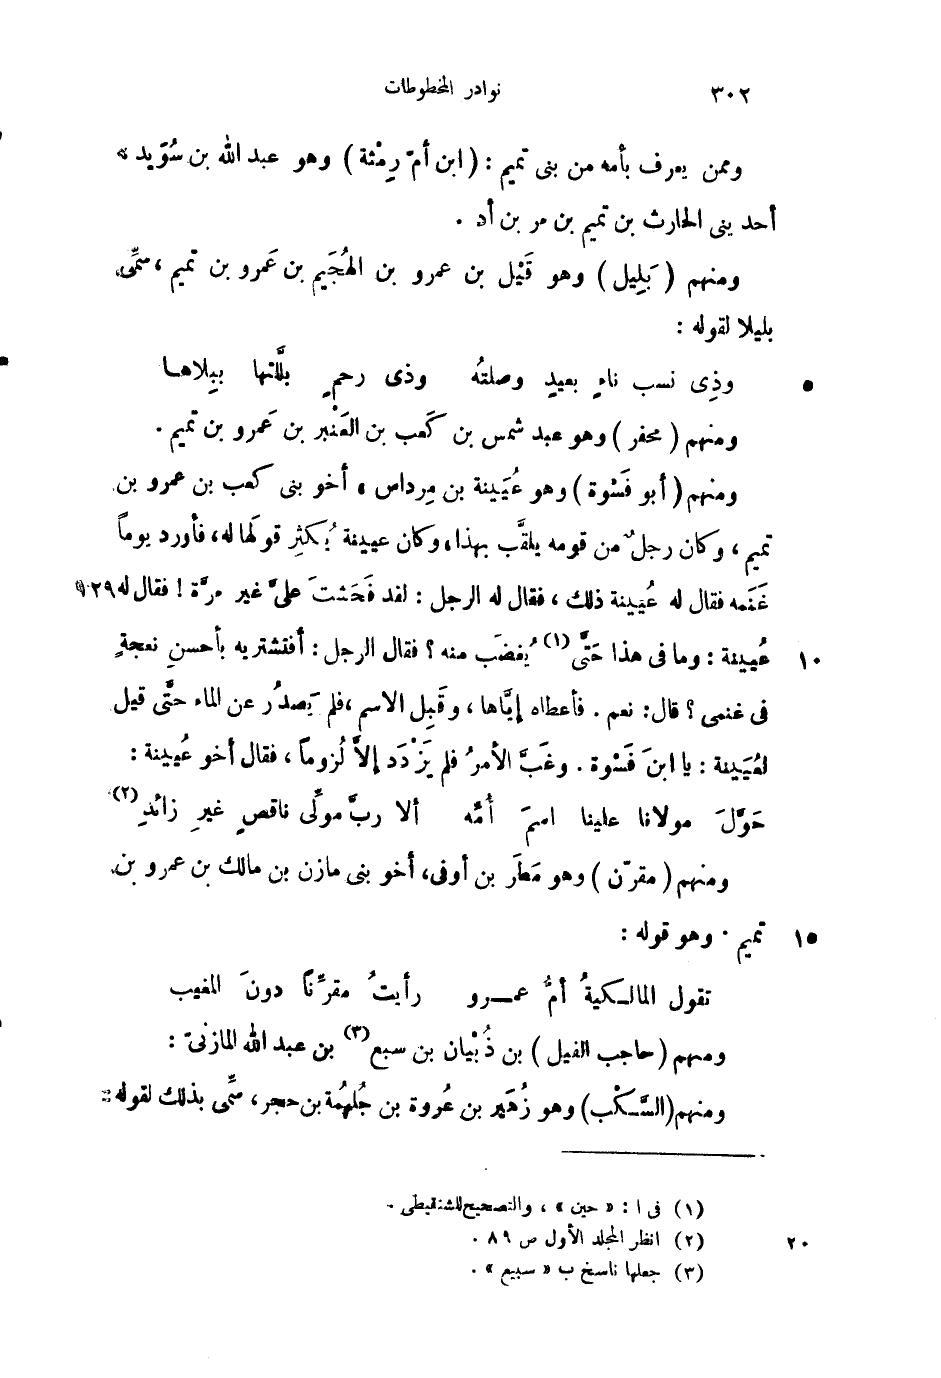 ٣٠٢ نوادر المخطوطات
وممن يعرف بأمه من بنى تميم : (ابن أمّ رِمْثة) وهو عبد الله بن سُوَيد ،
أحد بنى الحارث بن تميم بن مر بن أد .
ومنهم (بَلِيل) وهو قَيْل بن عمرو بن الهُجَيم بن عَمرو بن تميم ، سمِّى
بليلا لقوله :
وذِى نسب ناءٍ بعيدٍ وصلتُه وذى رحمٍ بلَّلتها ببِلاهـا ٥
ومنهم (محفر) وهو عبد شمس بن كَعب بن العَنْبر بن عَمرو بن تميم .
ومنهم (أبو فَسْوة) وهو عُيَينة بن مِرداس ، أخو بنى كعب بن عمرو بن
تميم ، وكان رجلٌ من قومه يلقَّب بهذا، وكان عيينة يُكثِر قولَها له، فأورد يوماً
غَنَمه فقال له عُيَينة ذلك ، فقال له الرجل : لقد فَحَشتَ علىَّ غير مرَّة ! فقال له ١٢٩
عُيينة : وما فى هذا حَتَّى (١) يُغضَب منه ؟ فقال الرجل : أفتشتريه بأحسنِ نعجةٍ ١٠
فى غنمى ؟ قال: نعم . فأعطاه إيَّاها ، وقَبِل الاسم ،فلم يَصدُر عن الماء حتَّى قيل
لعُيَينة : يا ابنَ فَسْوة . وغَبَّ الأمرُ فلم يَزْدَد إلاَّ لُزوماً ، فقال أخو عُيينة :
حَوَّلَ مولانا علينا اسمَ أُمِّه ألا ربَّ مولًى ناقصٍ غيرِ زائدِ (٢)
ومنهم (مقرّن) وهو مَطَر بن أوفى، أخو بنى مازن بن مالك بن عمرو بن
تميم . وهو قوله : ١٥
تقول المالـكيةُ أمُّ عمـرو رأيتُ مقرِّناً دونَ المغيب
ومنهم (حاجب الفيل) بن ذُبْيان بن سبع (٣) بن عبد الله المازنىّ :
ومنهم (السَّـكْب) وهو زُهَير بن عُروة بن جُلهُمة بن حجر، سمِّى بذلك لقوله :
(١) فى ا : « حين » ، والتصحيح للشنقيطى .
(٢) انظر المجلد الأول ص ٨٩ . ٢٠
(٣) جعلها ناسخ ب « سبيع » .